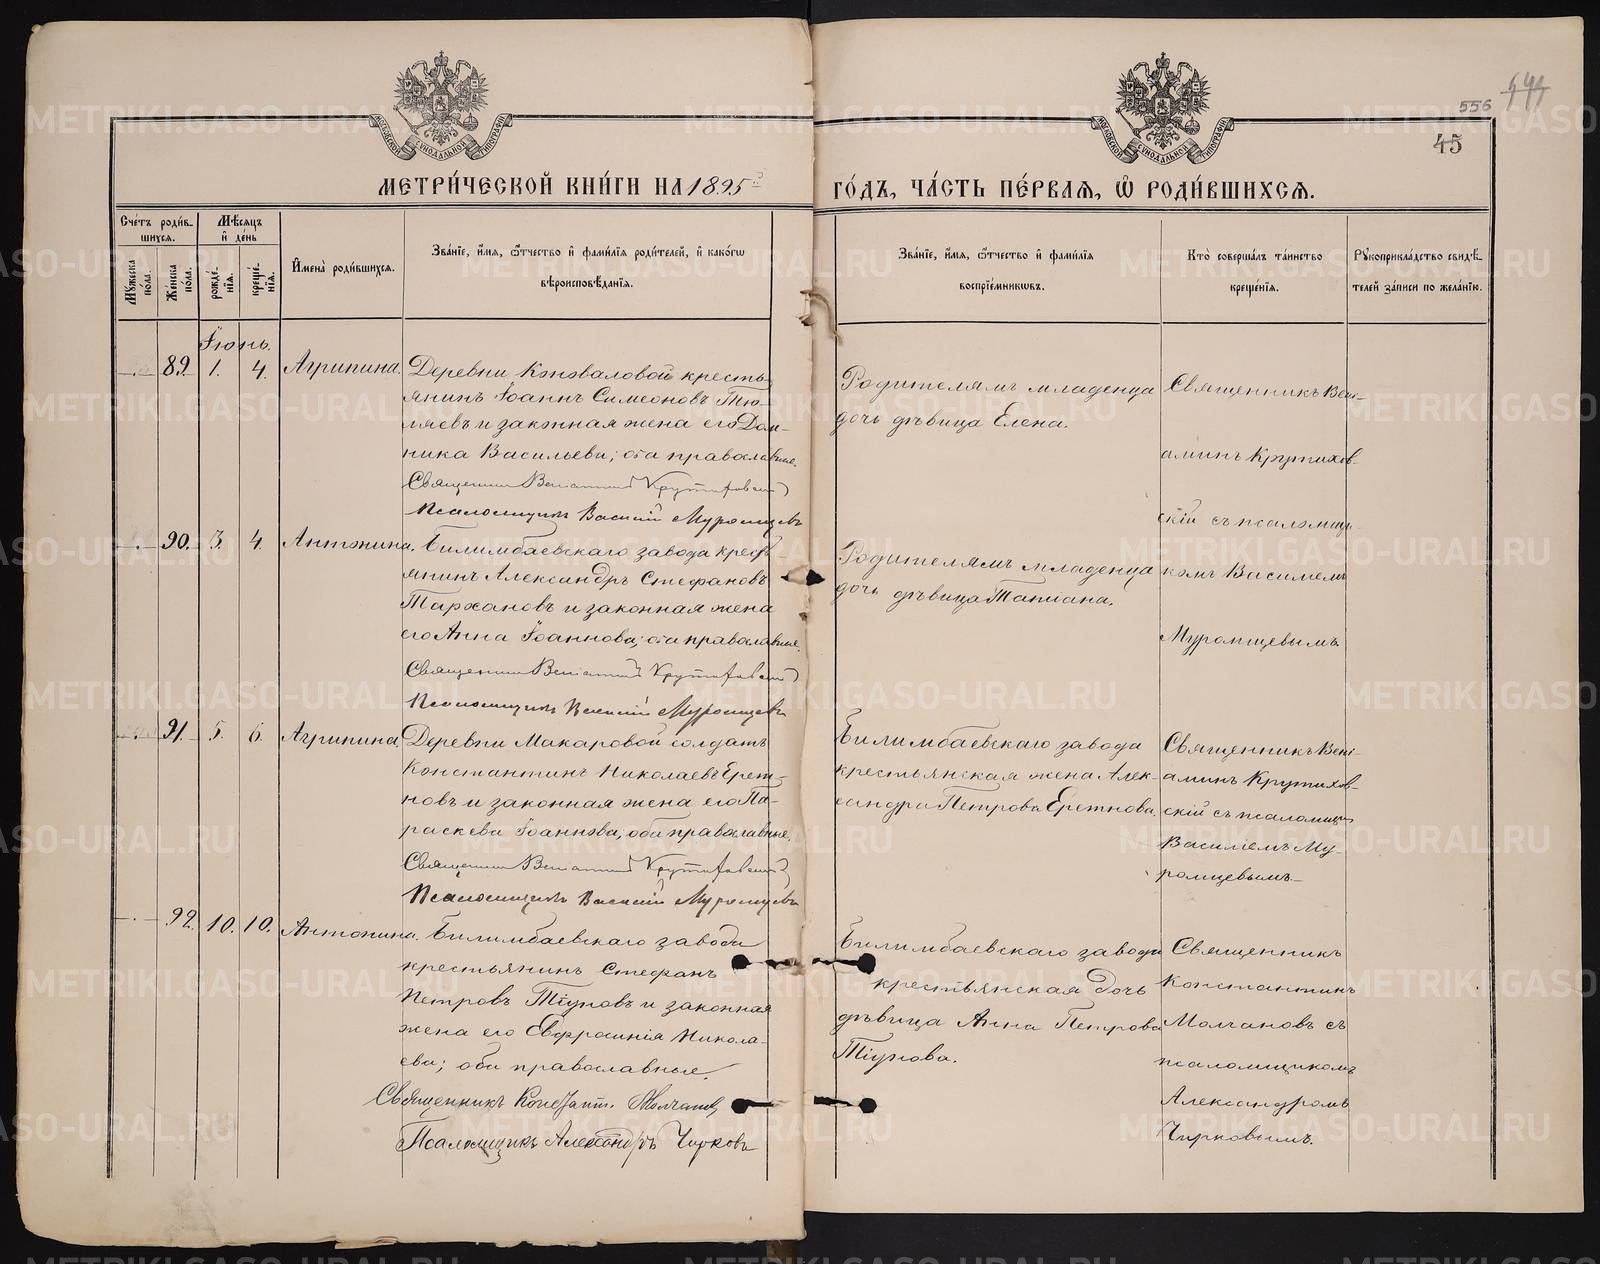 556
45
МЕТРИ́ЧЕСКОЙ КНИ́ГИ НА 1895 ГО́ДЪ, ЧА́СТЬ ПЕ́РВАѦ, Ѿ РОДИ́ВШИХСѦ.
МОСКОВСКОЙ СѴНОДАЛЬНОЙ ТИПОГРАФІИ
МОСКОВСКОЙ СѴНОДАЛЬНОЙ ТИПОГРАФІИ
Сче́тъ роди́в-
шихсѧ.
Мꙋжеска по́ла.
Же́нска по́ла.
Мѣ́сѧцъ и́ де́нь
рожде́-
нїѧ.
креще́-
нїѧ.
И҆мена̀ роди́вшихсѧ.
Зва́нїе, и҆́мѧ, ѻ҆́тчество и҆ фами́лїѧ роди́телей, и҆ како́гѡ
вѣроисповѣ́данїѧ.
Зва́нїе, и҆́мѧ, ѻ҆́тчество и҆ фами́лїѧ
воспрїе́мникѡвъ.
Кто̀ соверша́лъ та́инство
креще́нїѧ.
Рꙋкоприкла́дство свидѣ́-
телей за́писи по жела́нїю.
Іюнь.
89. 1. 4. Агрипина.
Деревни Коноваловой кресть-
янинъ Іоаннъ Симеоновъ Тю-
ляевъ и законная жена его Дом-
ника Васильева; оба православные.
Священникъ Веніаминъ Крутиховскій
Псаломщикъ Василій Муромцевъ
Родителямъ младенца
дочь дѣвица Елена.
Священникъ Вені-
аминъ Крутихов-
скій съ псаломщи-
комъ Василіемъ
Муромцевымъ.
90. 3. 4. Антонина.
Билимбаевскаго завода крест-
янинъ Александръ Стефановъ
Тарханов и законная жена
его Анна Іоаннова; оба православные.
Священникъ Веніаминъ Крутиховскій
Псаломщикъ Василій Муромцевъ
Родителямъ младенца
дочь дѣвица Татіана.
91. 5. 6. Агрипина.
Деревни Макаровой солдатъ
Константинъ Николаевъ Ерет-
новъ и законная жена его Па-
раскева Іоаннова; оба православные.
Священникъ Веніаминъ Крутиховскій
Псаломщикъ Василій Муромцевъ
Билимбаевскаго завода
крестьянская жена Алек-
сандра Петрова Еретнова.
Священникъ Вені-
аминъ Крутихов-
скій съ псаломщик
Василіемъ Му-
ромцевымъ.
92. 10. 10. Антонина.
Билимбаевскаго завода
крестьянинъ Стефанъ
Петровъ Тіуновъ и законная
жена его Евфросинія Никола-
ева; оба православные.
Священникъ Констант. Молчановъ
Псаломщикъ Александръ Чирковъ
Билимбаевскаго завода
крестьянская дочь
дѣвица Анна Петрова
Тіунова.
Священникъ
Константинъ
Молчановъ съ
псаломщикомъ
Александромъ
Чирковымъ.
METRIKI.GASO-URAL.RU